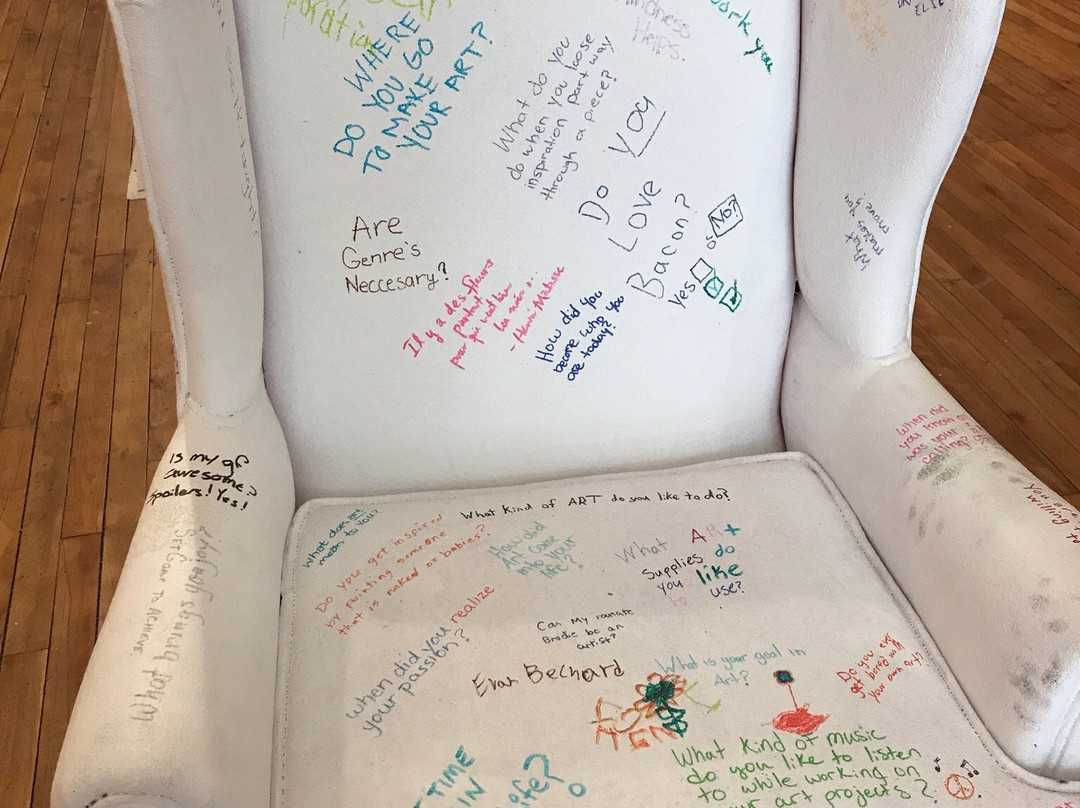 WHERE
DO YOU GO
TO MAKE
YOUR ART?
What do you
do when you loose
inspiration part way
through a piece?
work you
Do You
LOVE
Bacon?
Yes
or
No?
Are
Genre's
Neccesary?
Il y a des fleurs
partout
pour qui veut bien
les voir...
- Henri Matisse
How did you
become who you
are today?
What
makes you
move?
When did
you know
was your
calling?
Is my gf
awesome?
Spoilers! Yes!
What brings you joy?
Set Goals to Achieve
What kind of ART do you like to do?
What does art
mean to you?
Do you get inspired
by painting someone
that is naked or babies?
How did
Art come
into your
life?
What ARt
Supplies do
you like
to use?
When did you realize
your passion?
Can my roomate
Brodie be an
artist?
Evan Bechard
What is your goal in
Art?
Do you ever
get bored with
your own art?
What kind of music
do you like to listen
to while working on
your art projects?
TIME
IN
life?